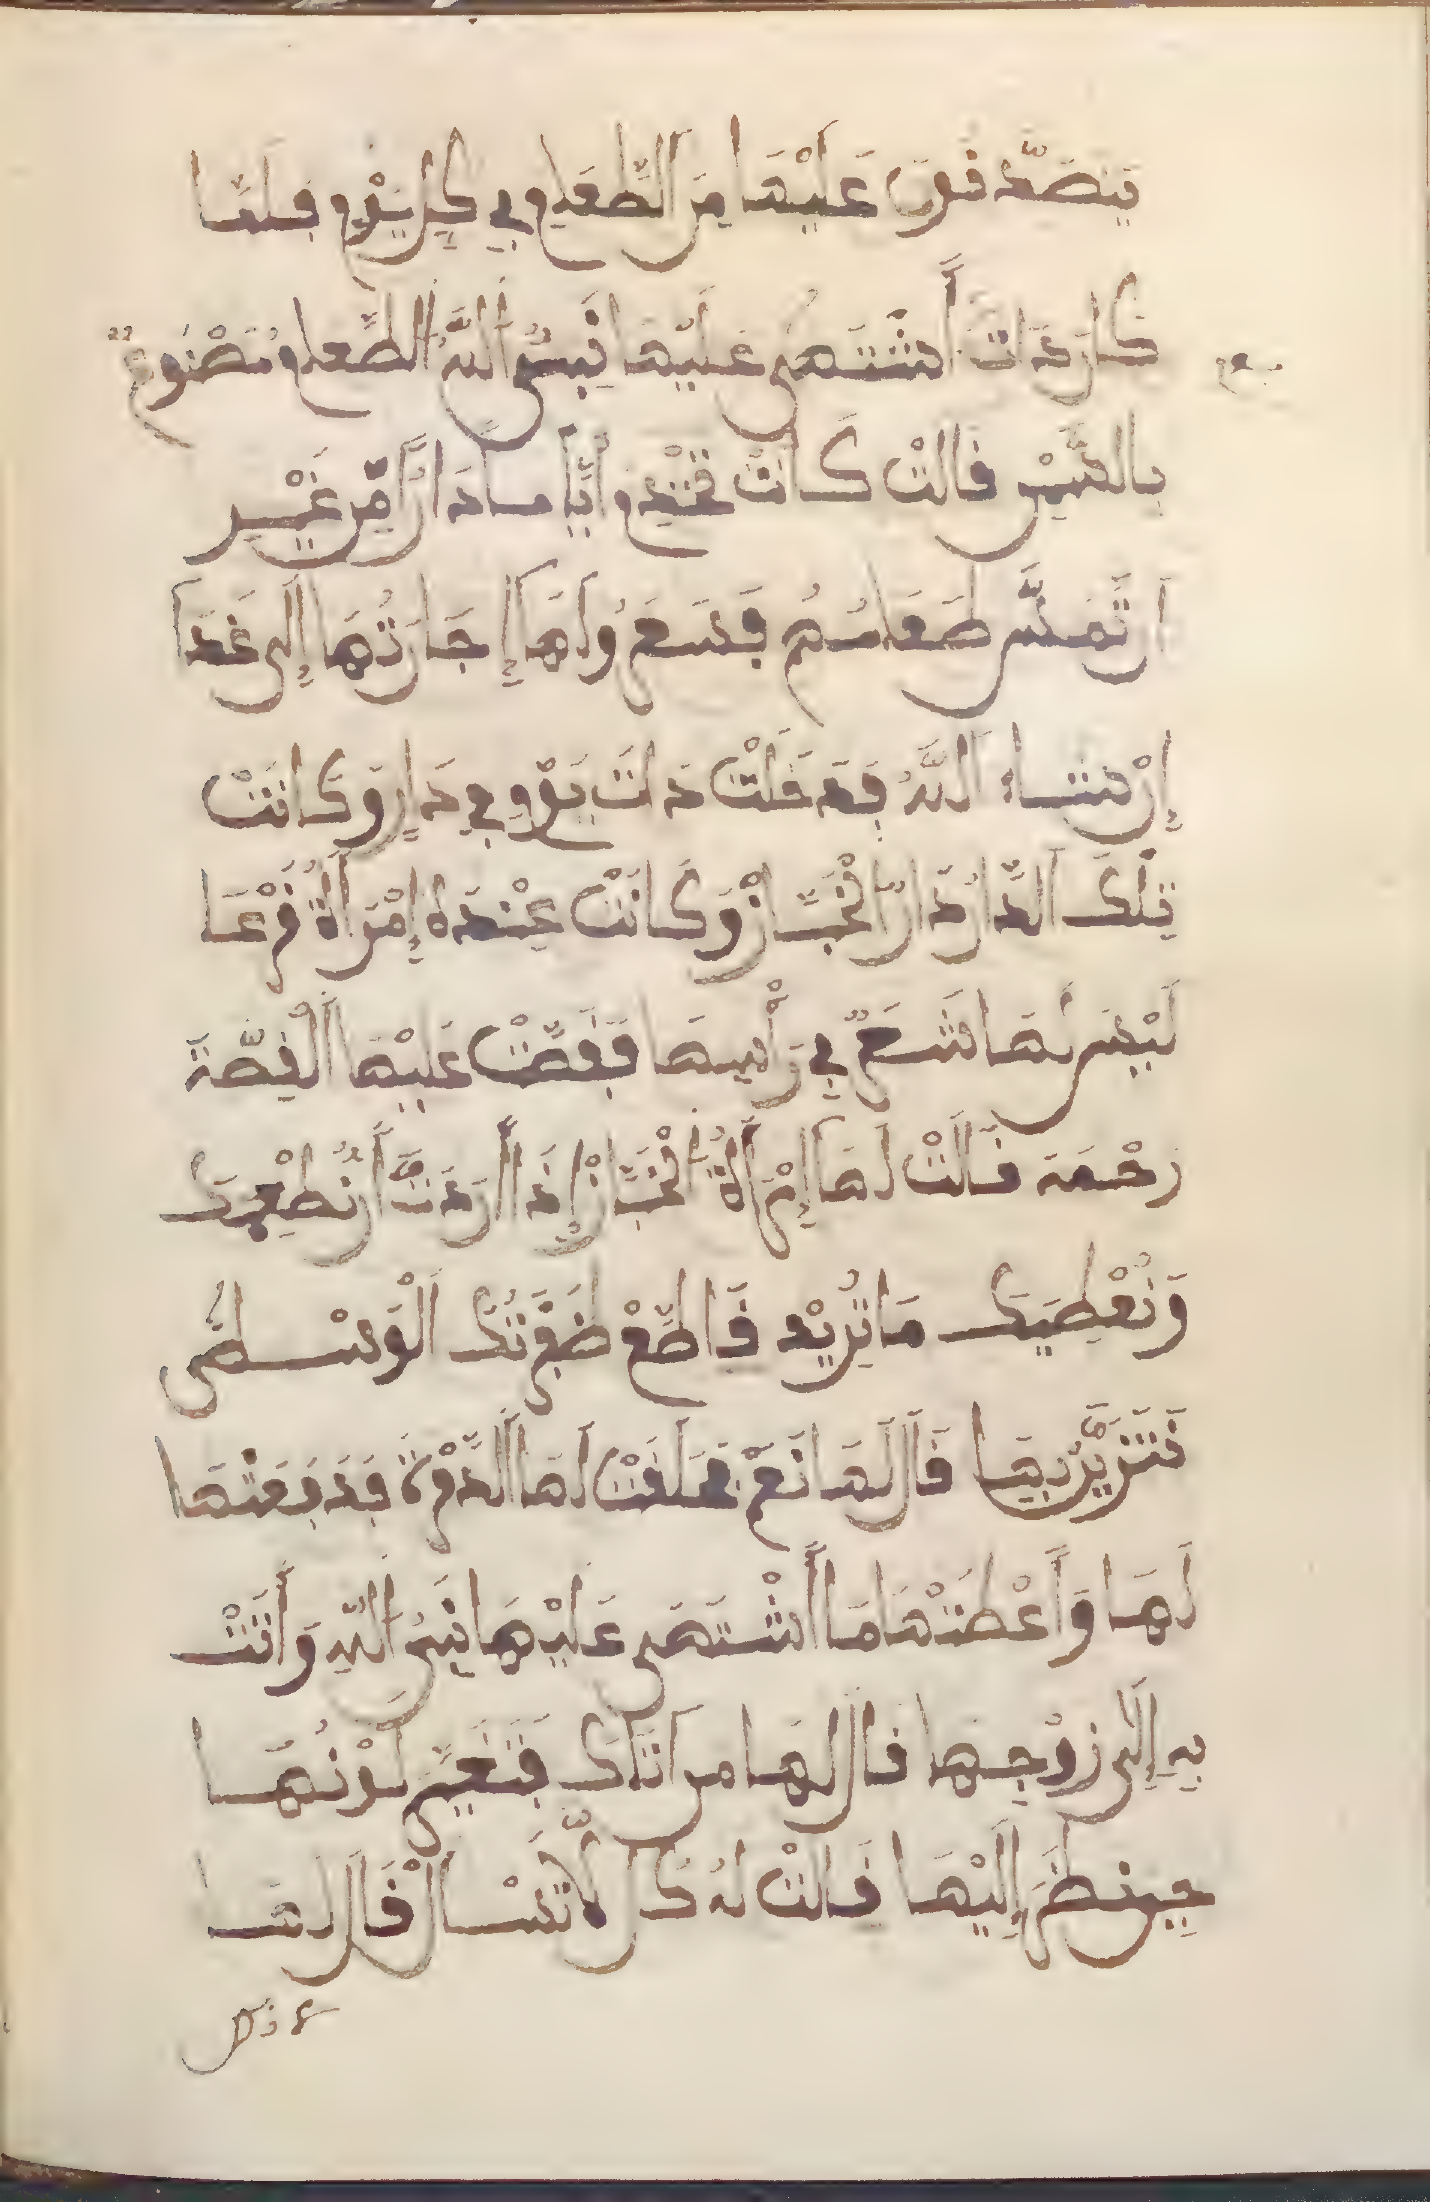 يَتَصَدَّقُونَ عَلَيْهَا مِنَ الطَّعَامِ فِي كُلِّ يَوْمٍ فَلَمَّا
كَانَ ذَاتَ أَشْتَهَى عَلَيْهَا نَبِيُّ اللَّهِ الطَّعَامَ مَصْنُوعٌ
يوم
بالطِّيبِ قَالَتْ كَانَتْ تَخْدِمُ أَيَّامًا دَارًا مِّنْ غَيْرِ
أَن تَمَسَّ طَعَامَهُم فَسَعَوْا لَهَا إِجَارَتُهَا إِلَى غَدًا
إِنْ شَاءَ اللَّهُ فَدَخَلَتْ ذَاتَ يَوْمٍ فِي دَارٍ وَكَانَتْ
تِلْكَ الدَّارُ دَارَ الْخَبَّازْ وَكَانَتْ عِنْدَهُ إِمْرَأَةٌ قَرْعَا
لَيْسَ لَهَا شَعَرٌ فِي رَأْسِهَا فَقَصَّتْ عَلَيْهَا الْقِصَّةَ
رَحْمَة قَالَتْ لَهَا إِمْرَأَةُ الْخَبَّازْ إِذَا أَرَدْتَ أَن نُطْعِمَكِ
وَنُعْطِيَكِ مَا تُرِيدْ فَاقْطَعْ ضَفِرَتُكَ الْوُسْطَى
نَتَزَيَّنُ بِهَا قَالَ لَهَا نَعَمْ فَحَلَفَتْ لَهَا الْمَرْأَة فَدَفَعَتْهَا
لَهَا وَأَعْطَتْهَا مَا أَشْتَهَى عَلَيْهَا نَبِيُّ اللَّهِ وَأَتَتْ
بِهِ إِلَى زَوْجِهَا قَالَ لَهَا مَن أَتَاكِ فَتَغَيَّرَ لَوْنُهَا
حِينَ نَظَرَ إِلَيْهَا قَالَتْ لَهُ كُلْ لَا تَسْأَلْ قَالَ لَهَا